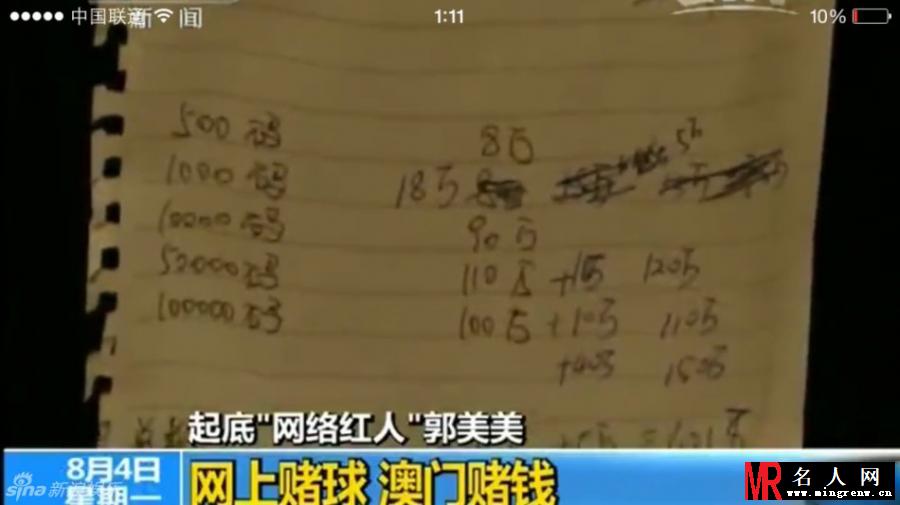 中国联通 新闻 1:11 10%
500码 8万
5万
1000码 18万
10000码 90万
50000码 110万 +1万 120万
100000码 100万 +10万 110万
+40万 150万
起底"网络红人"郭美美
8月4日 网上赌球 澳门赌钱
星期一
sina新浪娱乐
MR 名人网
www.mingrenw.cn